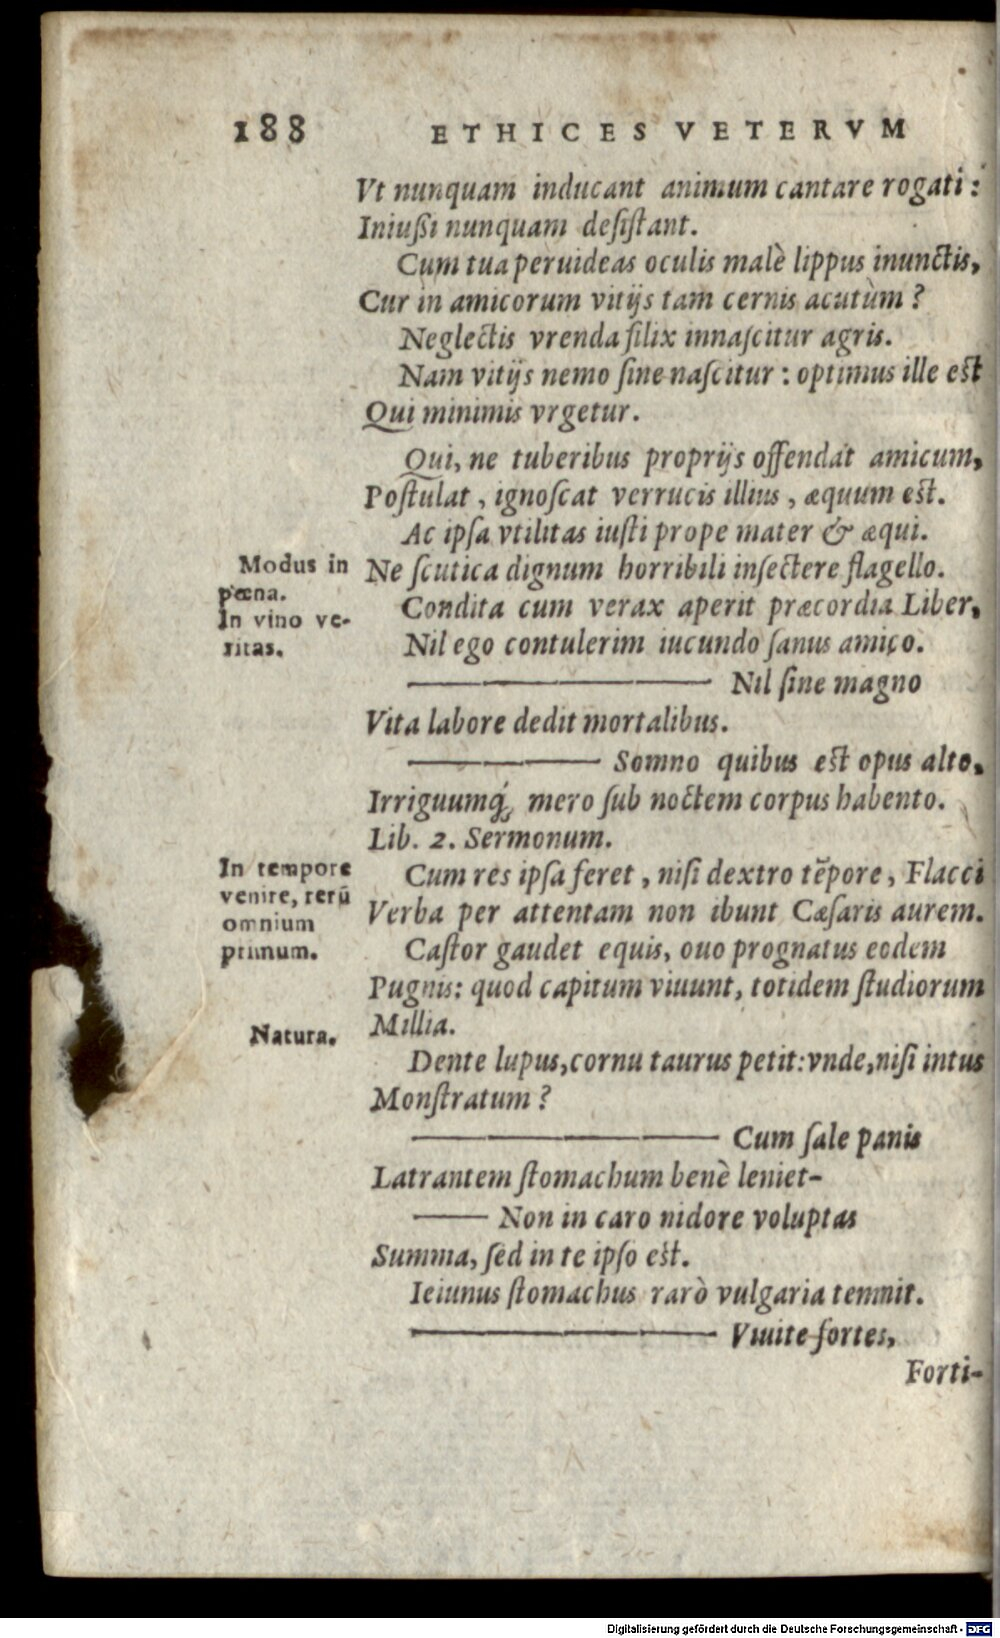 188 ETHICES VETERVM
Vt nunquam inducant animum cantare rogati:
Iniußi nunquam desiſtant.
Cum tua peruideas oculis malè lippus inunctis,
Cur in amicorum vitijs tam cernis acutùm?
Neglectis vrenda filix innaſcitur agris.
Nam vitijs nemo ſine naſcitur: optimus ille eſt
Qui minimis vrgetur.
Qui, ne tuberibus proprijs offendat amicum,
Poſtulat, ignoſcat verrucis illius, æquum eſt.
Ac ipſa vtilitas iuſti prope mater & æqui.
Modus in pœna.
Ne ſcutica dignum horribili inſectere flagello.
In vino veritas.
Condita cum verax aperit præcordia Liber,
Nil ego contulerim iucundo ſanus amico.
———— Nil ſine magno
Vita labore dedit mortalibus.
———— Somno quibus eſt opus alto,
Irriguumq́; mero ſub noctem corpus habento.
Lib. 2. Sermonum.
In tempore
venire, rerū
omnium
primum.
Cum res ipſa feret, niſi dextro tēpore, Flacci
Verba per attentam non ibunt Cæſaris aurem.
Caſtor gaudet equis, ouo prognatus eodem
Pugnis: quod capitum viuunt, totidem ſtudiorum
Millia.
Natura.
Dente lupus, cornu taurus petit: vnde, niſi intus
Monſtratum?
———— Cum ſale panis
Latrantem ſtomachum benè leniet-
—— Non in caro nidore voluptas
Summa, ſed in te ipſo eſt.
Ieiunus ſtomachus rarò vulgaria temnit.
———— Viuite fortes,
Forti-
Digitalisierung gefördert durch die Deutsche Forschungsgemeinschaft - DFG